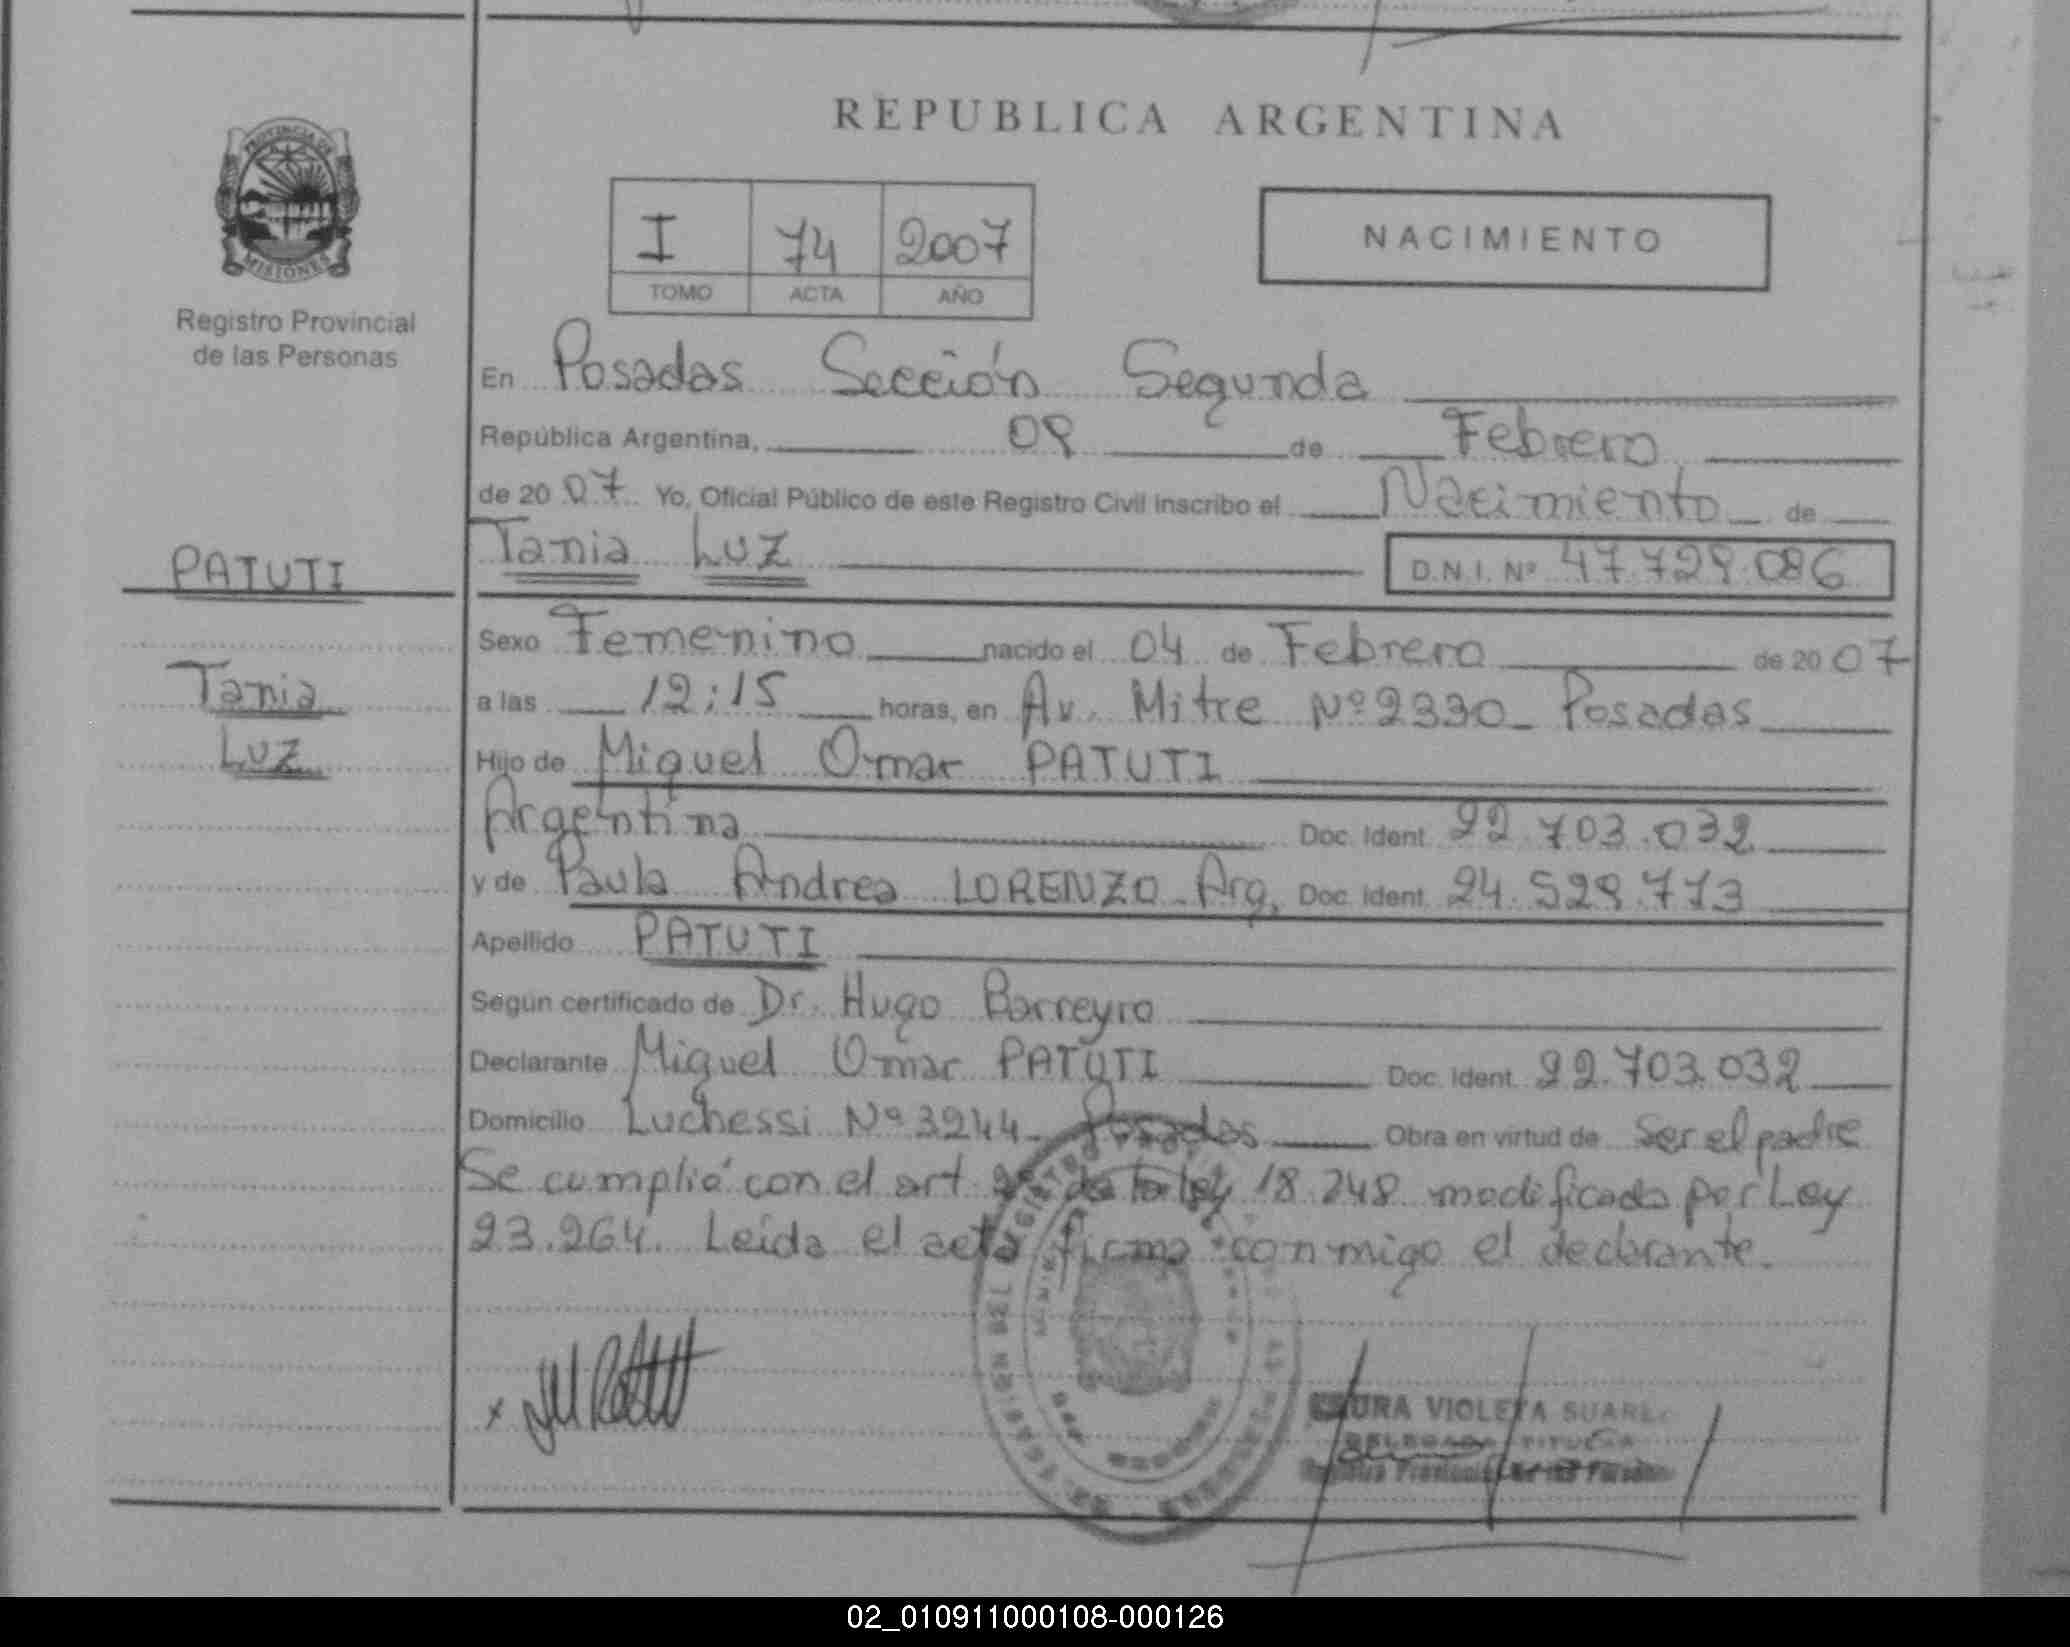 REPUBLICA ARGENTINA
PROVINCIA DE
MISIONES
Registro Provincial
de las Personas
I 74 2007
TOMO ACTA AÑO
NACIMIENTO
En Posadas Sección Segunda
República Argentina, 08 de Febrero
de 20 07 Yo, Oficial Público de este Registro Civil inscribo el Nacimiento de
Tania Luz D.N.I. Nº 47.729.086
PATUTI
Tania
Luz
Sexo Femenino nacido el 04 de Febrero de 20 07
a las 12:15 horas, en Av. Mitre Nº 2330 - Posadas
Hijo de Miguel Omar PATUTI
Argentina Doc. Ident. 22.703.032
y de Paula Andrea LORENZO - Arg. Doc. Ident. 24.529.773
Apellido PATUTI
Según certificado de Dr. Hugo Barreyro
Declarante Miguel Omar PATUTI Doc. Ident. 22.703.032
Domicilio Luchessi Nº 3244 - Posadas Obra en virtud de Ser el padre
Se cumplió con el art de la ley 18.248 modificada por Ley
23.264. Leída el acta firma conmigo el declarante.
VIOLETA SUAREZ
DELEGADA TITULAR
Registro Provincial de las Personas
02_010911000108-000126